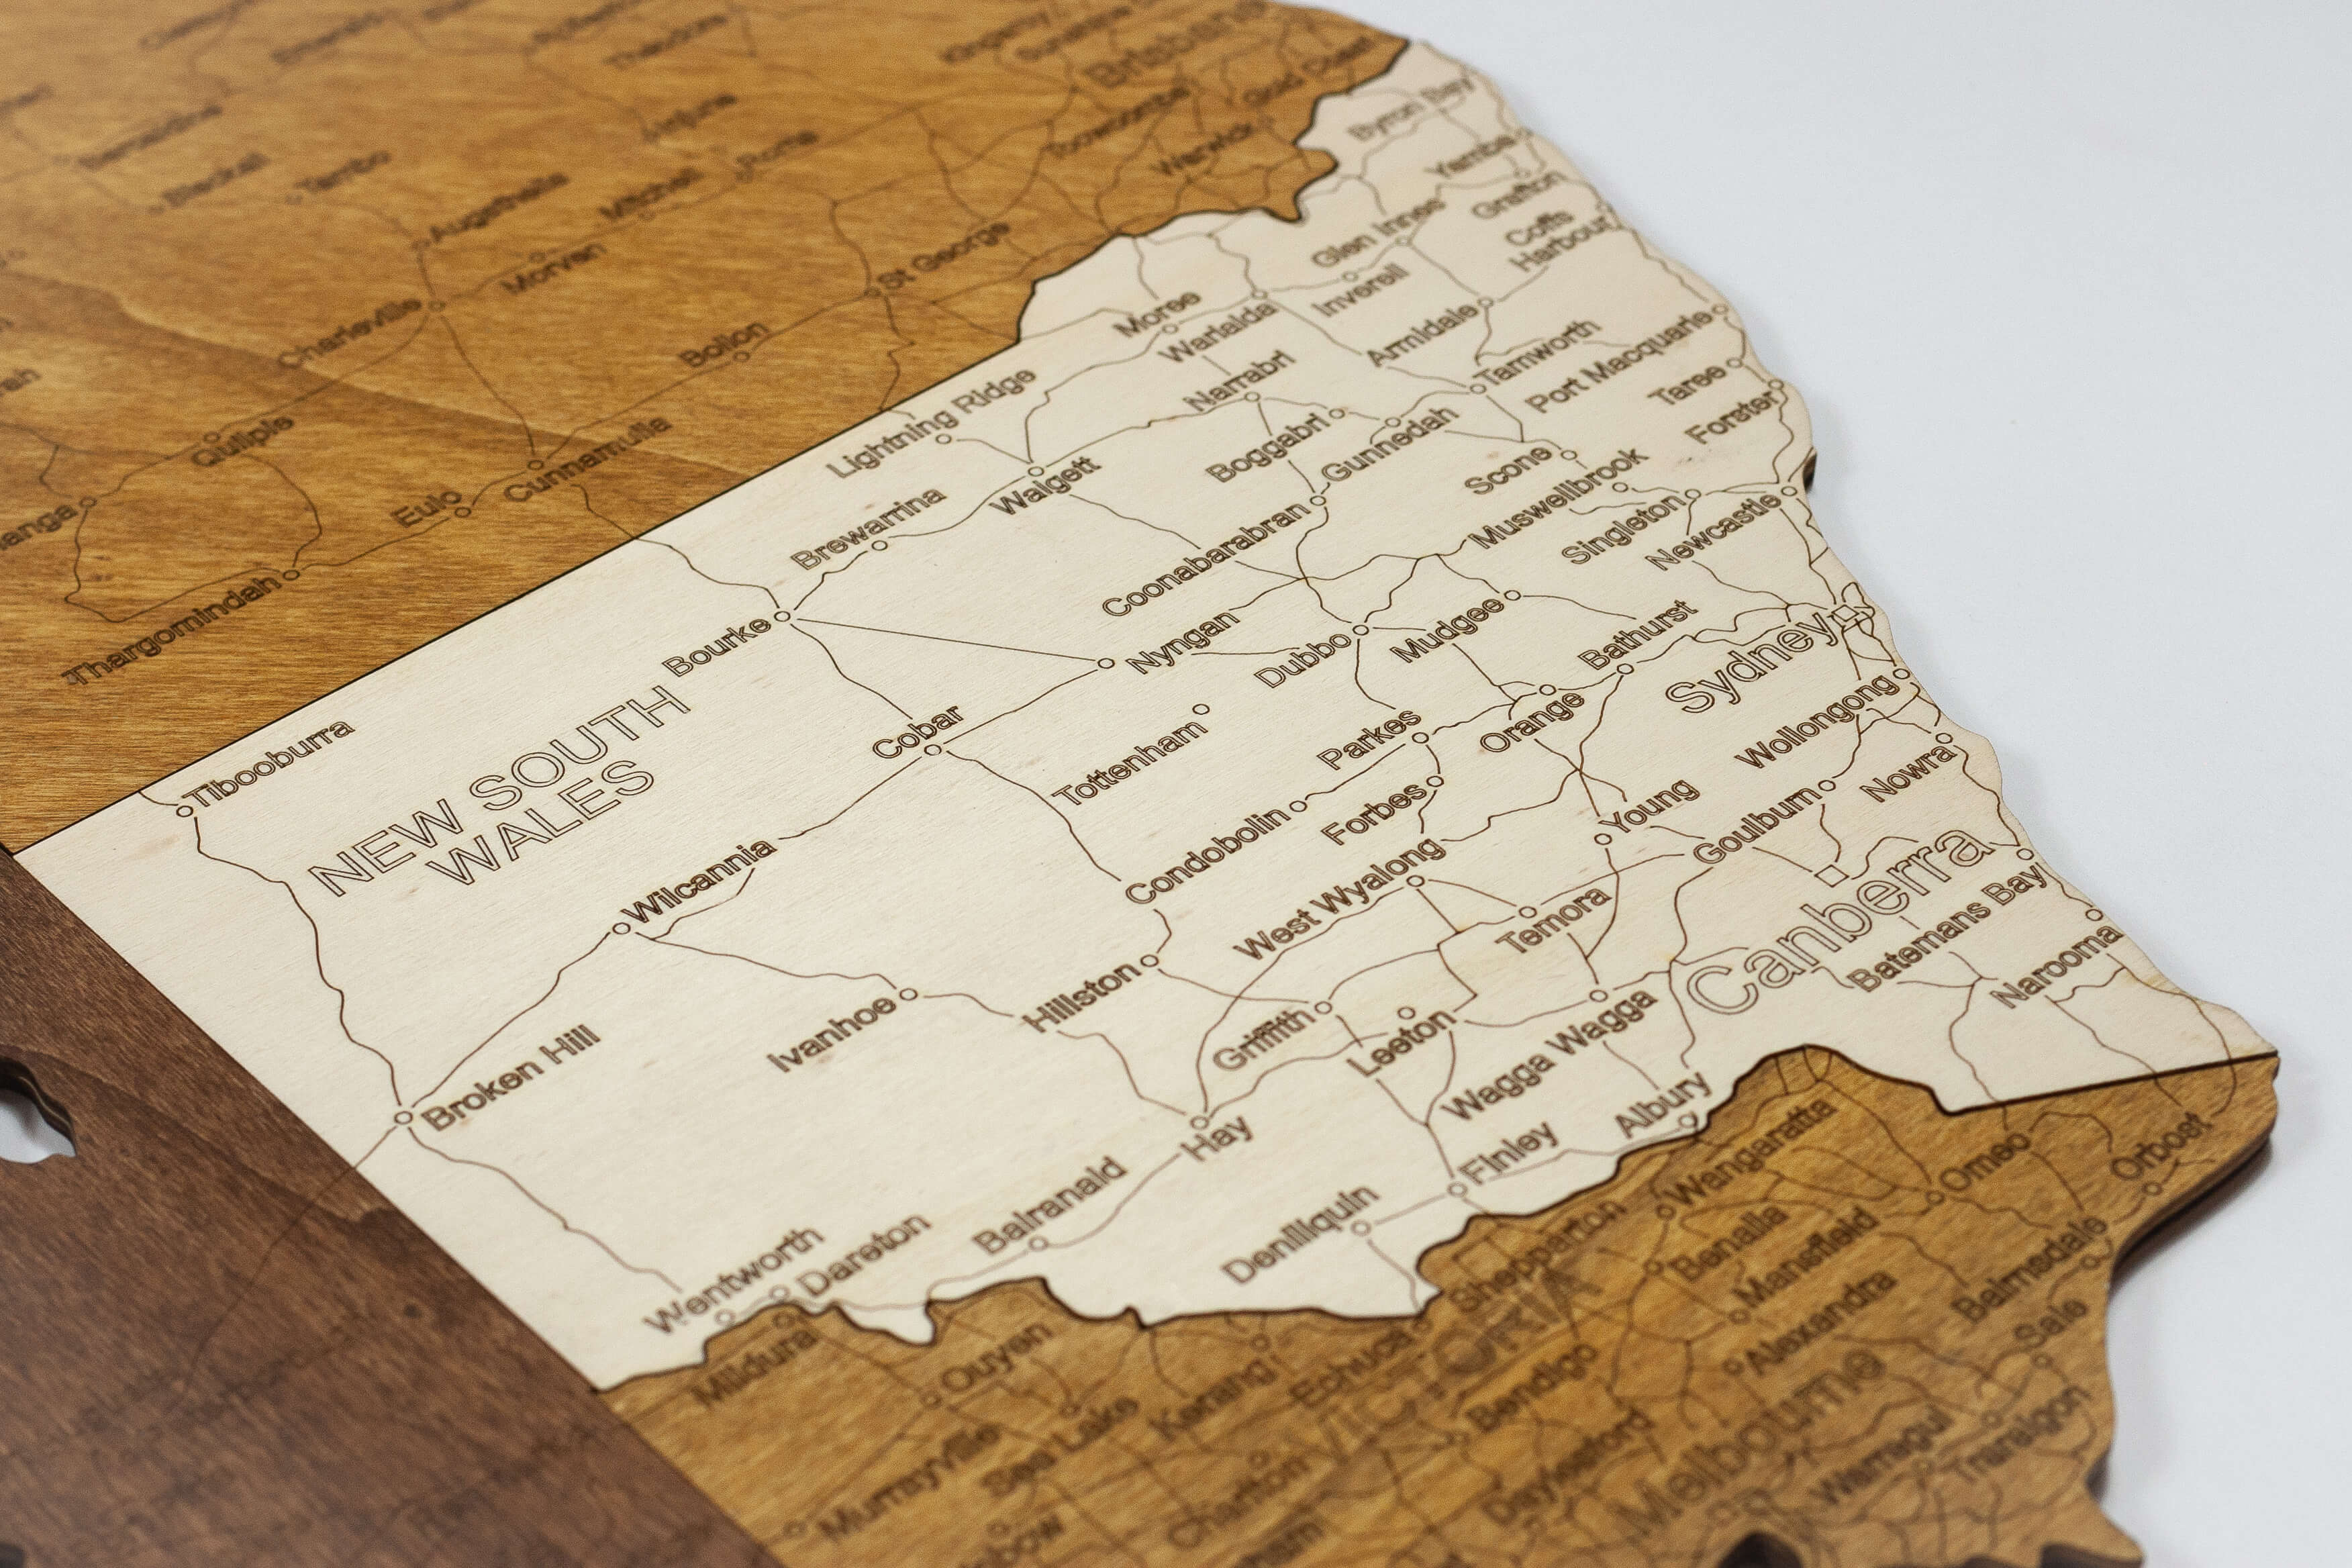 Theodore
Brisbane
Gold Coast
Byron Bay
Toowoomba
Injune
Barcaldine
Warwick
Yamba
Blackall
Tambo
Roma
Mitchell
Grafton
Augathella
Glen Innes
Coffs
Harbour
Morven
St George
Inverell
Moree
Charleville
Warialda
Armidale
Bollon
Tamworth
Port Macquarie
Narrabri
Taree
Lightning Ridge
Forster
Quilpie
Boggabri
Gunnedah
Cunnamulla
Scone
Walgett
Muswellbrook
Eulo
Brewarrina
Singleton
Newcastle
Coonabarabran
Thargomindah
Nyngan
Dubbo
Mudgee
Bathurst
Bourke
Sydney
Tibooburra
NEW SOUTH
WALES
Cobar
Tottenham
Parkes
Orange
Wollongong
Nowra
Forbes
Young
Goulburn
Condobolin
Wilcannia
Canberra
West Wyalong
Temora
Batemans Bay
Narooma
Broken Hill
Ivanhoe
Hillston
Griffith
Leeton
Wagga Wagga
Albury
Hay
Finley
Wangaratta
Omeo
Orbost
Balranald
Deniliquin
Wentworth
Dareton
Shepparton
Benalla
Mansfield
Bairnsdale
Mildura
Ouyen
Kerang
Echuca
VICTORIA
Alexandra
Sale
Bendigo
Melbourne
Murrayville
Sea Lake
Charlton
Daylesford
Warragul
Traralgon